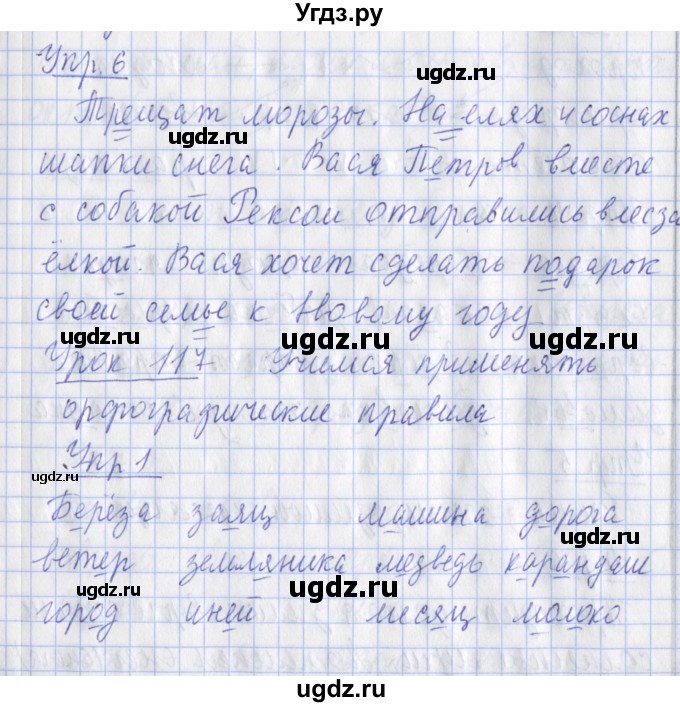 Угдз.ру
Упр. 6
ugdz.ru
Трещат морозы. На елях и соснах
ugdz.ru ugdz.ru
шапки снега. Вася Петров вместе
с собакой Рексом отправились в лес за
ugdz.ru ugdz.ru
ёлкой. Вася хочет сделать подарок
своей семье к Новому году
ugdz.ru ugdz.ru ugdz.ru
Урок 117 Учимся применять
орфографические правила
Упр 1
ugdz.ru ugdz.ru ugdz.ru
Берёза заяц машина дорога
ugdz.ru ugdz.ru
ветер земляника медведь карандаш
ugdz.ru ugdz.ru
город иней месяц молоко
ugdz.ru ugdz.ru
ugdz.ru